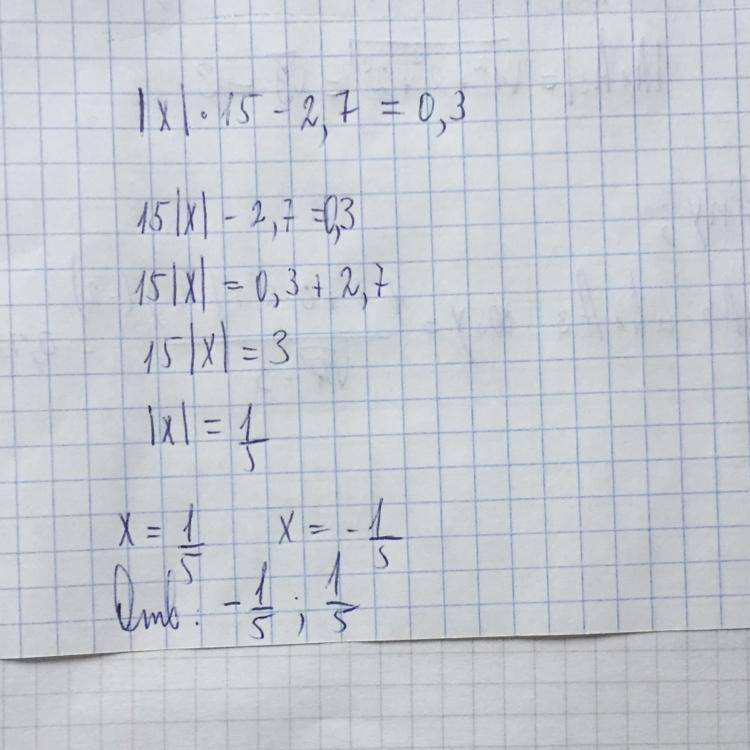 |x| · 15 - 2,7 = 0,3
15|x| - 2,7 = 0,3
15|x| = 0,3 + 2,7
15|x| = 3
|x| = 1/5
x = 1/5 x = - 1/5
Отв: - 1/5 ; 1/5